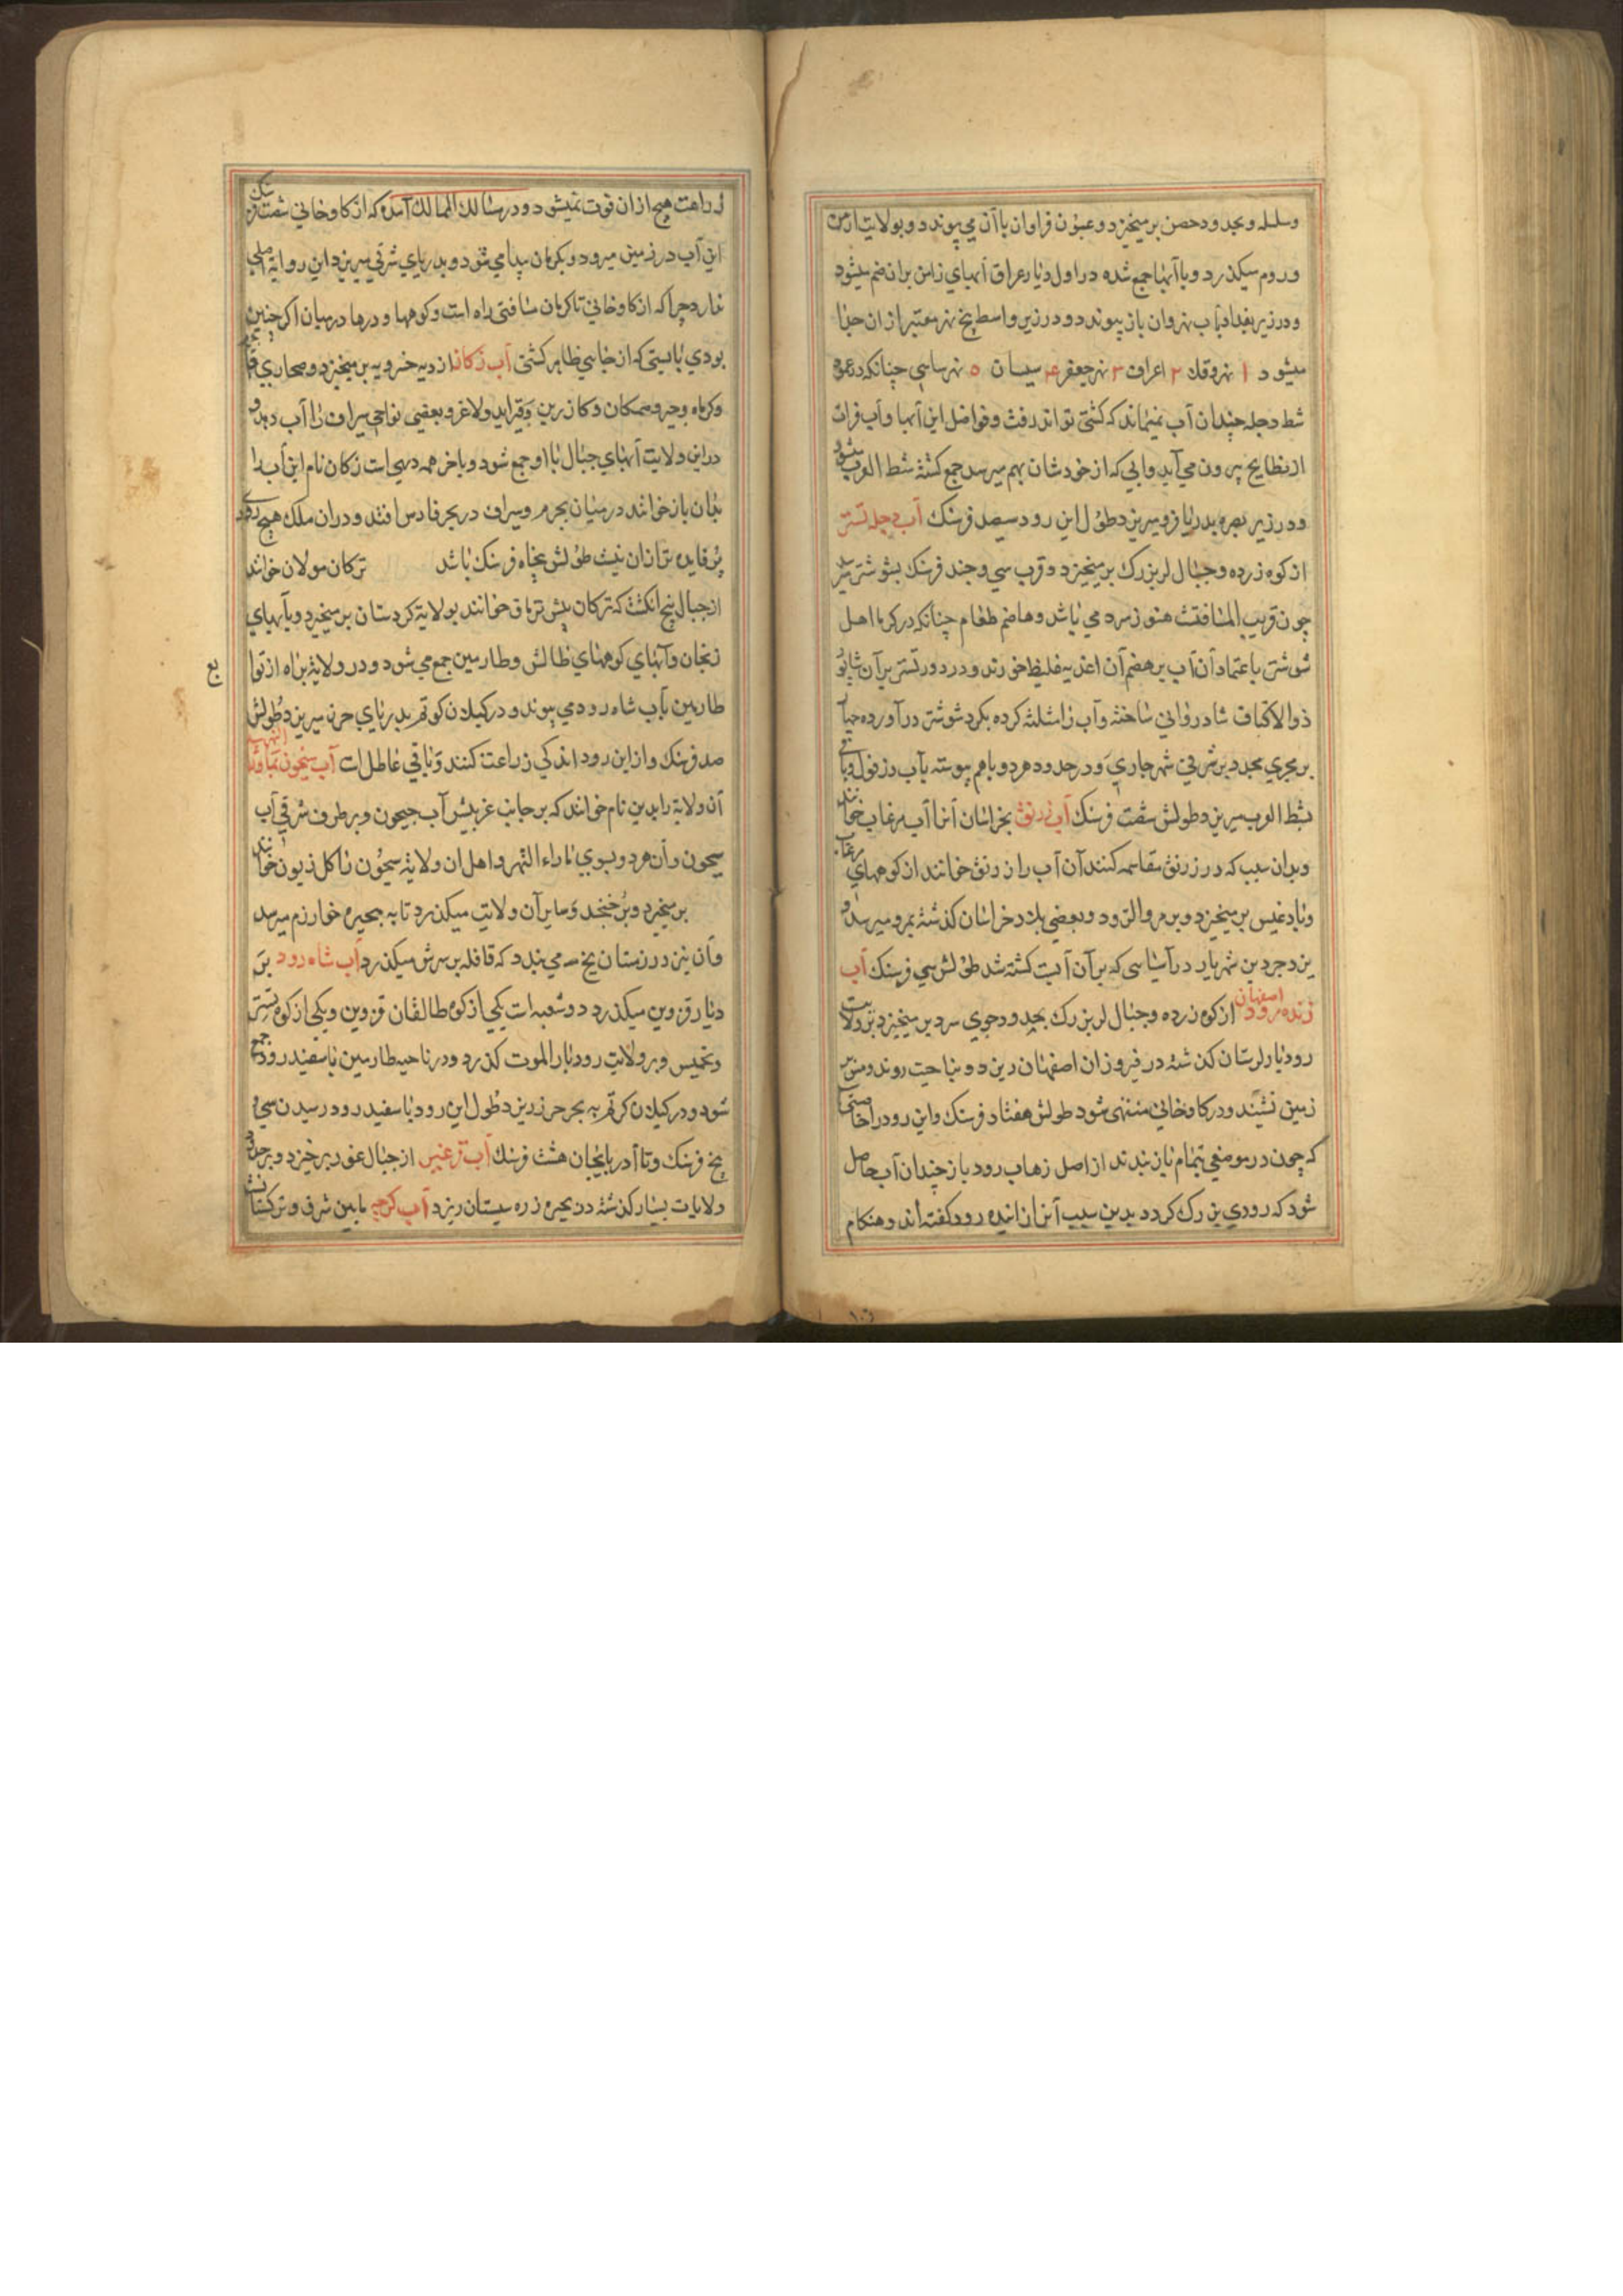 وسلسله وبحدود حصن بر میخیزد و عیون فراوان با آن می پیوندد و بولایت ارمن
و روم میکذرد و با آبها جمع شده در اول دیار عراق آبهای زابین بران ضم میشود
و در زیر بغداد بآب نهروان باز پیوندد و در زیر واسط پنج نهر معتبر از ان جدا
میشود ۱ نهر وقك ۲ اعراف ۳ نهر جعفر ۴ میسان ۵ نهر ساسی چنانکه در عمود
شط دجله چندان آب نمیماند که کشتی تواند رفت و فواضل این آبها و آب فرات
از بطایح بیرون می آید و آبی که از خودشان بهم میرسد جمع کشته شط العرب میشود
و در زیر بصره بدریا فرو میریزد طول این رود سیصد فرسنك آب دجله تستر
از کوه زرده و جبال لر بزرك بر میخیزد و قرب سی و چند فرسنك بشوشتر میرسد
چون قریب المسافتست هنوز سرد می باشد و هاضم طعام چنانکه در کرما اهل
شوشتر باعتماد آن آب بر هضم آن اغذیه غلیظ خورند و در دور تستر بر آن شاپور
ذو الاکتاف شادروانی ساخته و آب را مثلثه کرده بکرد شوشتر در آورده
بر مجری مجدد بر شرقی شهر جاری و در حدود هر دو با هم پیوسته بآب دزفول و باقی
بشط العرب میریزد طولش شصت فرسنك آب زرنق بخراسان آنرا آب مرغاب خوانند
و بدان سبب که در زرنق مقاسمه کنند آن آب را زرنق خوانند از کوههای مرغاب
و بادغیس بر میخیزد و بر مرو الرود و بعضی بلاد خراسان کذشته بمرو میرسد و
یزدجرد بن شهریار در آسیاسی که بر آن آبست کشته شد طولش سی فرسنك آب
زنده رود اصفهان از کوه زرده و جبال لر بزرك بحدود جوی سرد بر میخیزد بر ولایت
رودبار لرستان کذشته در فیروزان اصفهان ریزد و بناحیت رویدشت در
زمین نشیند و در کاوخانی منتهی شود طولش هفتاد فرسنك و این رود را خاصیتی
که چون در موضعی بتمام باز بندند از اصل زهاب رود باز چندان آب حاصل
شود که رودی بزرك کردد بدین سبب آنرا زاینده رود کفته اند و هنکام
زراعت هیچ از ان فوت نمیشود و در مسالك الممالك آمده که از کاوخانی شصت فرسنك
این آب در زمین میرود و بکرمان پیدا می شود و بدریای شرقی میریزد این روایة اصلی
ندارد چرا که از کاوخانی تا کرمان مسافتی راه است و کوهها و درها در میان اکر چنین
بودی بایستی که از جایی ظاهر کشتی آب زکان از دیه خسرویه بر میخیزد و صحاری
و کرباه و جیره و صمکان و کازرین و قیر ابد و لاغر و بعضی نواحی سیراف را آب دهد و
در این ولایت آبهای جبال با او جمع شود و باخر همه دیهی است زکان نام این آب را
بدان باز خوانند در میان نجیرم و سیراف در بحر فارس افتد و در ان ملك هیچ رود
پر فایده تر از ان نیست طولش پنجاه فرسنك باشد ترکان مولان خوانند
از جبال پنج انکشت که ترکان بیش ترماق خوانند بولایة کردستان بر میخیزد و بآبهای
زنجان و آبهای کوههای طالش و طارمین جمع می شود و در ولایة بزاه از توابع
طارمین بآب شاه رود می پیوندد و در کیلان کوتم بدریای خزر میریزد طولش
صد فرسنك و از این رود اندکی زراعت کنند و باقی عاطل است آب سیحون بماوراء النهر
آن ولایة را بدین نام خوانند که بر جانب غربیش آب جیحون و بر طرف شرقی آب
سیحون و آن هر دو بسوی ماراء النهر و اهل ان ولایة سیحون را کل زیون خوانند
بر میخیزد و بر خجند و سایر آن ولایت میکذرد تا به بحیره خوارزم میرسد
و آن نیز در زمستان یخ می بندد که قافله بر سرش میکذرد آب شاه رود بر
دیار قزوین میکذرد دو شعبه است یکی از کوه طالقان قزوین و یکی از کوه
و نخمیس و بر ولایت رودبار الموت کذرد و در ناحیه طارمین با سفید رود جمع
شود و در کیلان کرتم به بحر خزر ریزد طول این رود با سفید رود رسیدن سی و
پنج فرسنك و تا آذربایجان هشت فرسنك آب ترغیس از جبال غور بر خیزد و بر حدود
ولایات بسیار کذشته در بحیره زره سیستان ریزد آب کرجیه مابین شرق و ترکستان